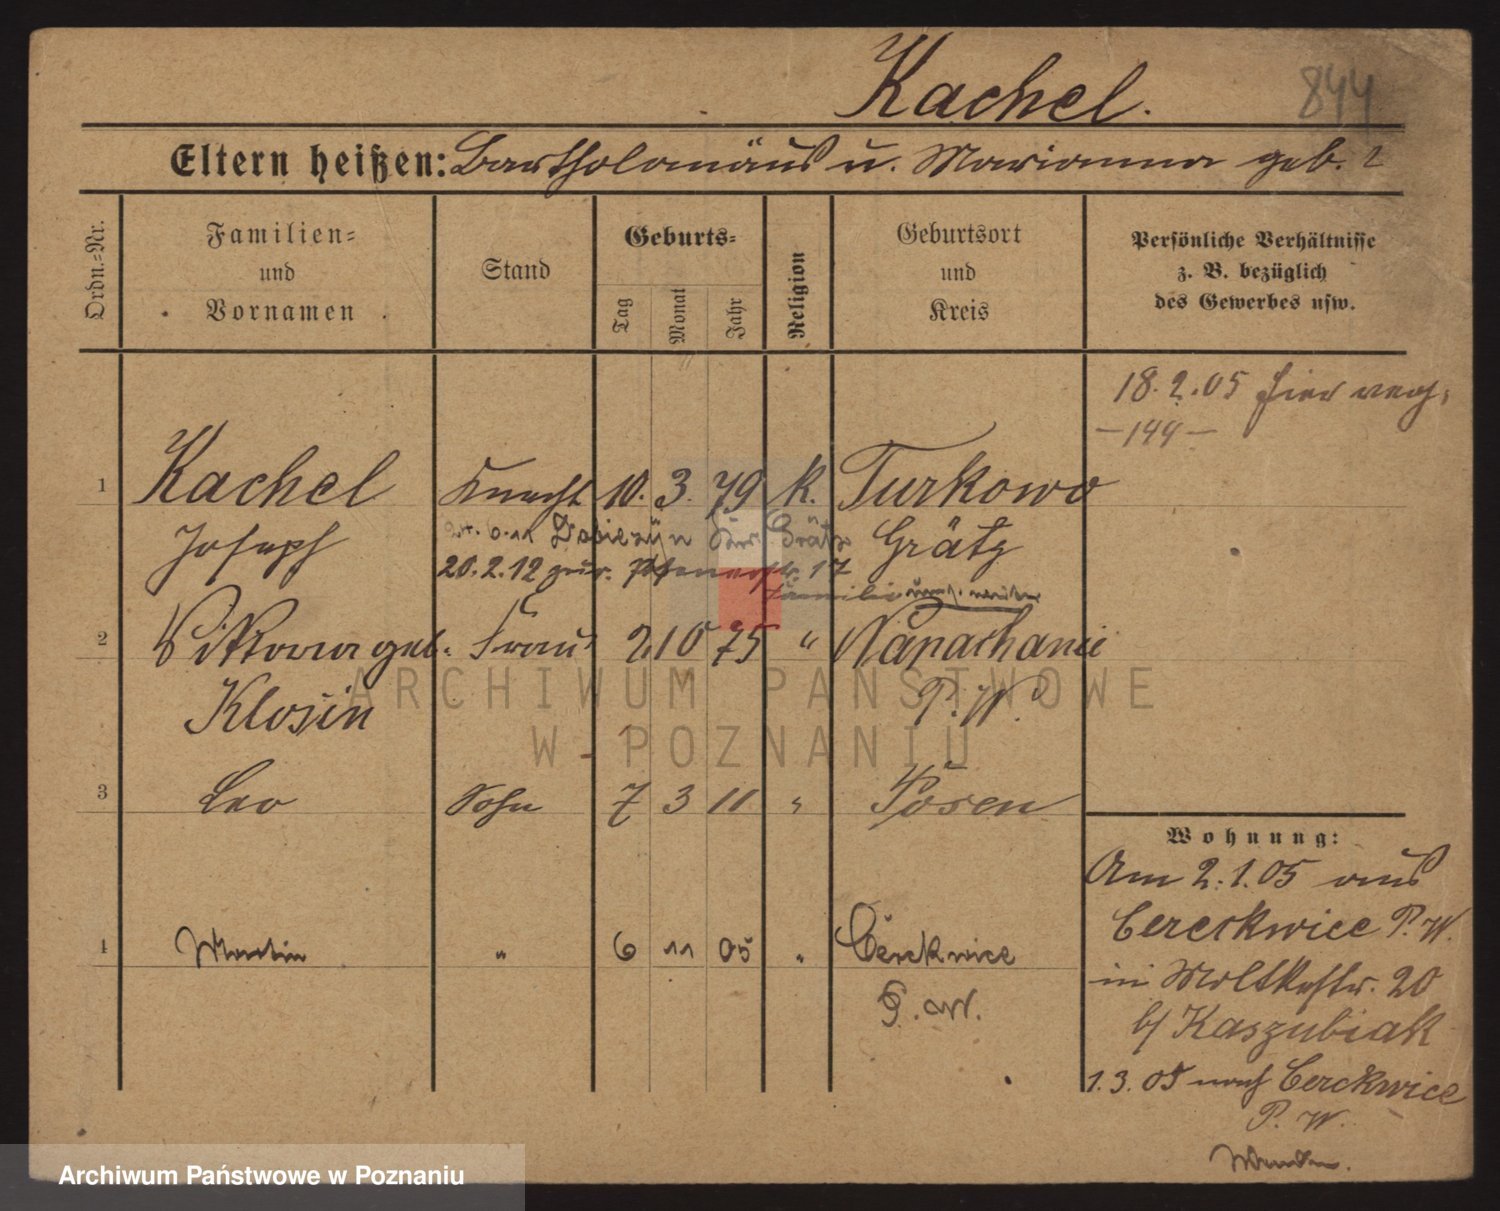 Kachel.
844
Eltern heißen: Bartholomäus u. Marianna geb. ?
Ordn.=Nr.
Familien=
und
Vornamen
Stand
Geburts=
Tag
Monat
Jahr
Religion
Geburtsort
und
Kreis
Persönliche Verhältnisse
z. B. bezüglich
des Gewerbes usw.
18.2.05 hier
—144—
1 Kachel Knecht 10. 3. 79 k. Turkowo
Joseph Grätz
Kreis Grätz
20.2.12 zur. 17
Familie
2 Viktoria geb. Frau 2 10 75 " Napachanie
Klosin P. W.
3 Leo Sohn 7 3 11 " Posen
Wohnung:
Am 2.1.05 aus
Cerekwice P. W.
in Moltkestr. 20
b/ Kaszubiak
1.3.05 nach Cerekwice
P. W.
4 Martin " 6 11 05 " Cerekwice
P. W.
ARCHIWUM PAŃSTWOWE
W POZNANIU
Archiwum Państwowe w Poznaniu